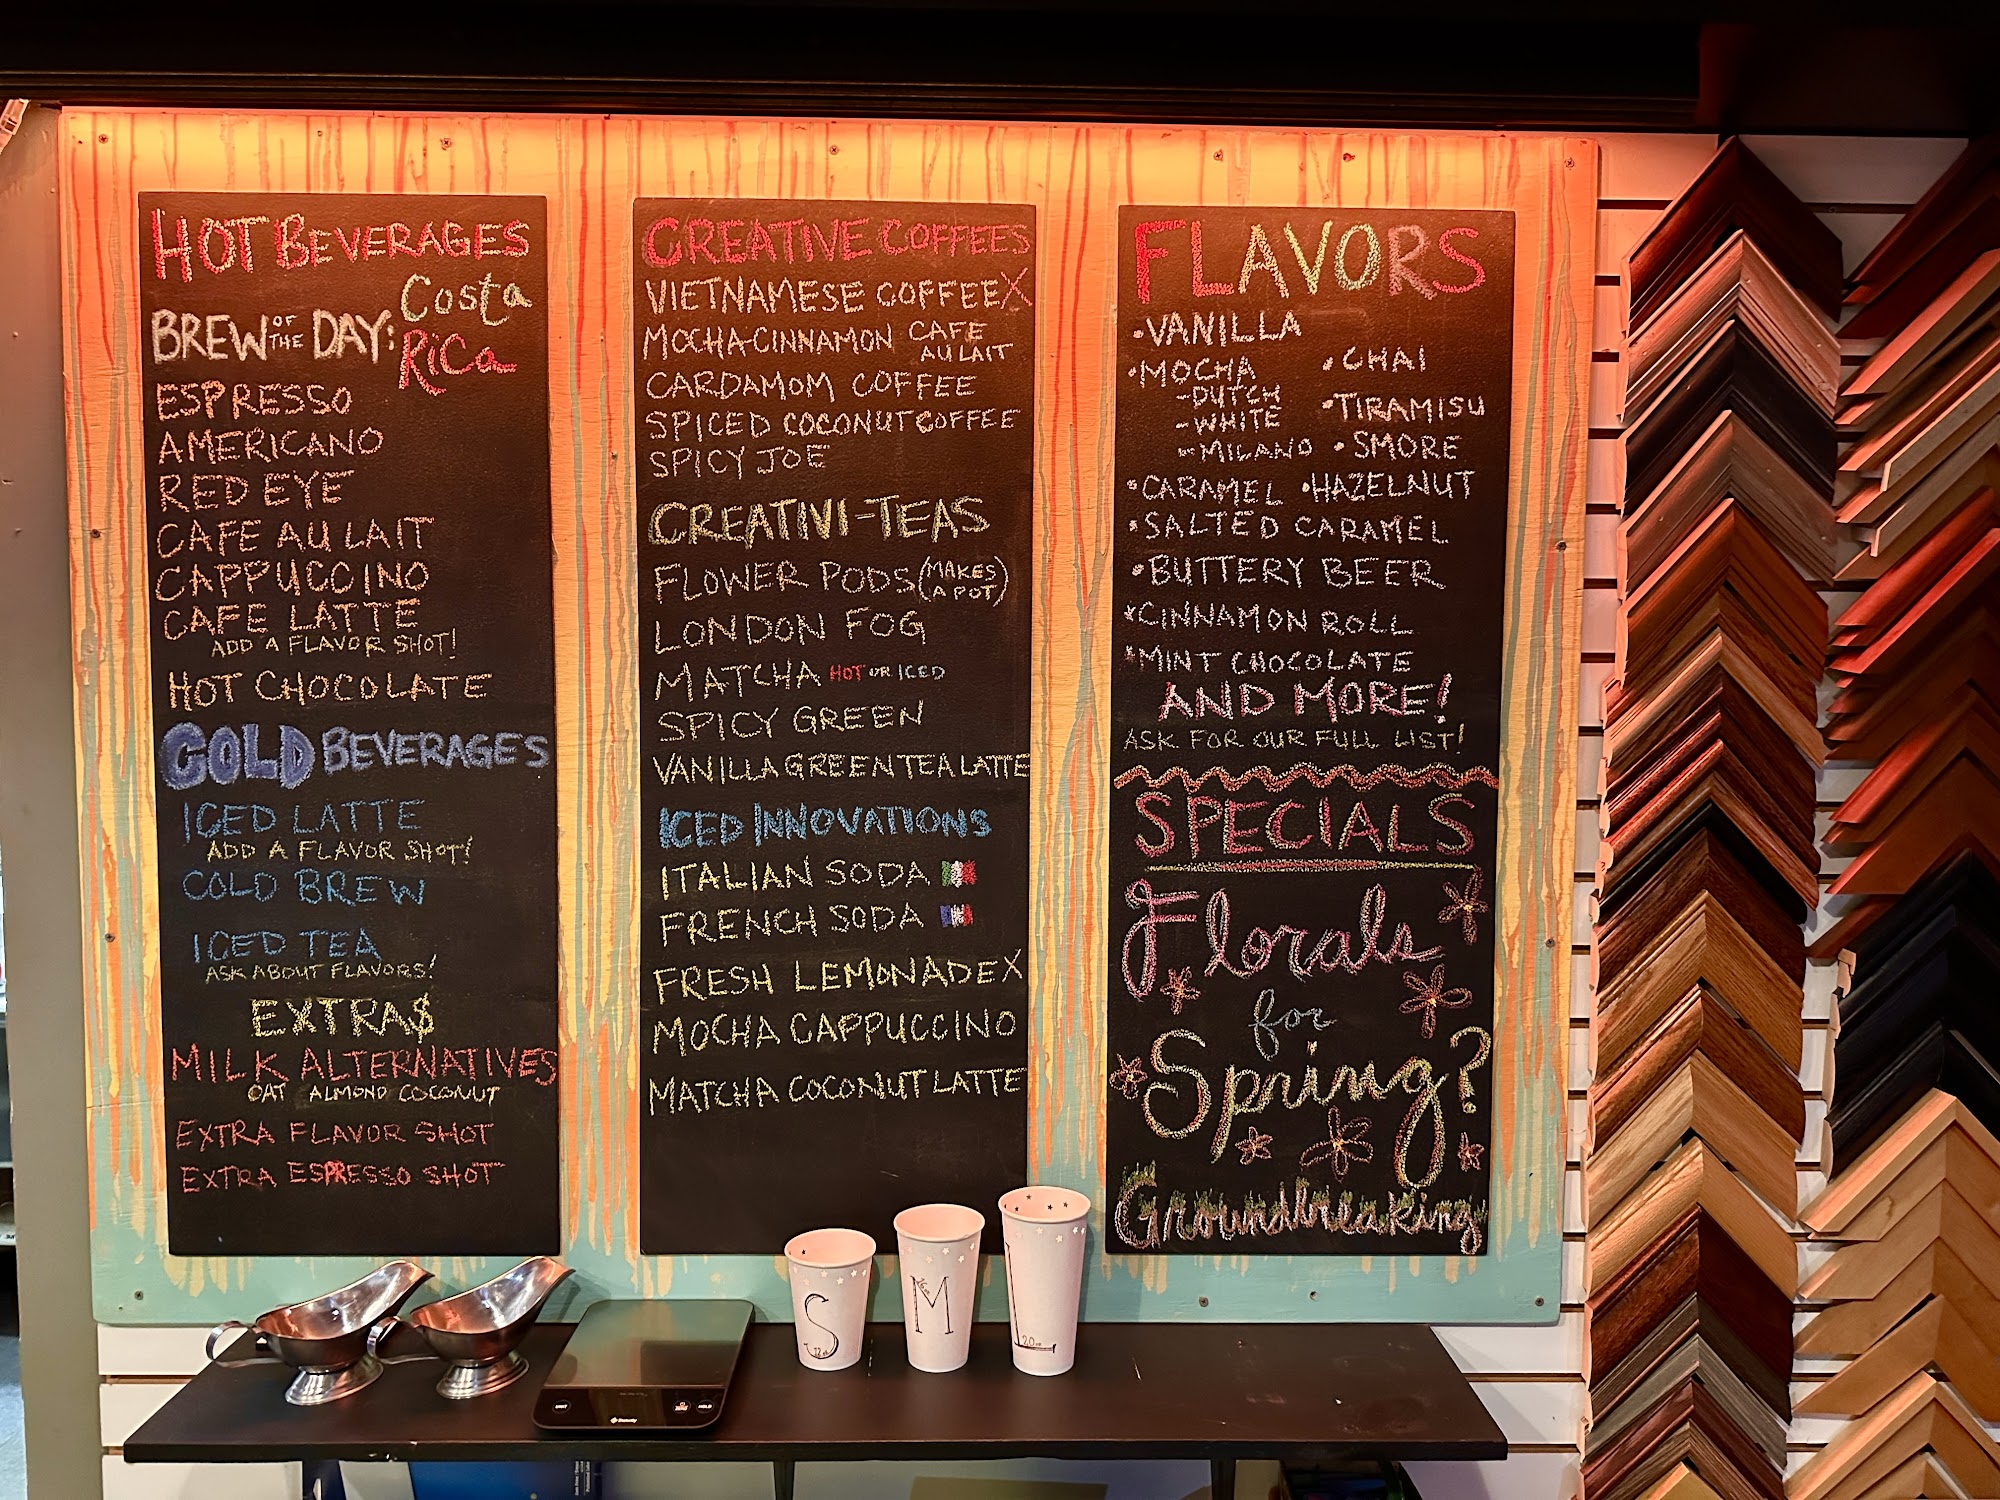 HOT BEVERAGES
BREW OF THE DAY: Costa Rica
ESPRESSO
AMERICANO
RED EYE
CAFE AU LAIT
CAPPUCCINO
CAFE LATTE
ADD A FLAVOR SHOT!
HOT CHOCOLATE
COLD BEVERAGES
ICED LATTE
ADD A FLAVOR SHOT!
COLD BREW
ICED TEA
ASK ABOUT FLAVORS!
EXTRA$
MILK ALTERNATIVES
OAT ALMOND COCONUT
EXTRA FLAVOR SHOT
EXTRA ESPRESSO SHOT
CREATIVE COFFEES
VIETNAMESE COFFEE X
MOCHA-CINNAMON CAFE AU LAIT
CARDAMOM COFFEE
SPICED COCONUT COFFEE
SPICY JOE
CREATIVI-TEAS
FLOWER PODS (MAKES A POT)
LONDON FOG
MATCHA HOT OR ICED
SPICY GREEN
VANILLA GREEN TEA LATTE
ICED INNOVATIONS
ITALIAN SODA
FRENCH SODA
FRESH LEMONADE X
MOCHA CAPPUCCINO
MATCHA COCONUT LATTE
FLAVORS
•VANILLA
•MOCHA •CHAI
-DUTCH
-WHITE •TIRAMISU
-MILANO •SMORE
•CARAMEL •HAZELNUT
•SALTED CARAMEL
•BUTTERY BEER
*CINNAMON ROLL
*MINT CHOCOLATE
AND MORE!
ASK FOR OUR FULL LIST!
SPECIALS
Florals
for
Spring?
Groundbreaking
S
12oz
M
L
20oz
UNIT
HOLD